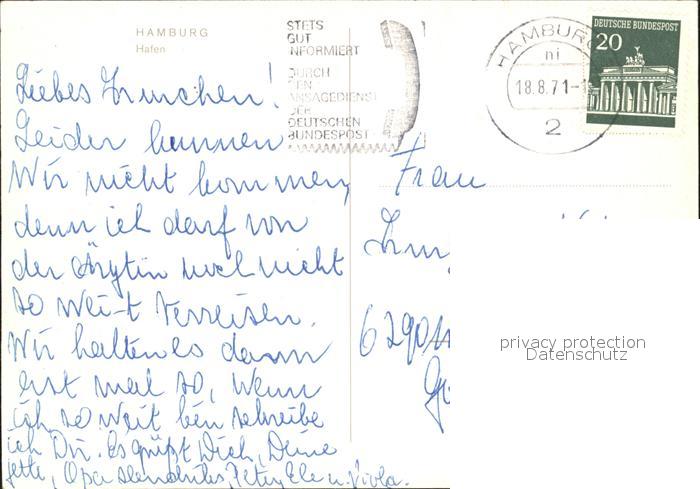 HAMBURG
Hafen
STETS
GUT
INFORMIERT
DURCH
DEN
ANSAGEDIENST
DER
DEUTSCHEN
BUNDESPOST
HAMBURG
ni
18.8.71
2
DEUTSCHE BUNDESPOST
20
Liebes Irmchen!
Leider kannen
Wir nicht kommen,
denn ich darf von
der Ärztin noch nicht
so weit verreisen.
Wir halten es dann
erst mal so, wenn
ich so weit bin schreibe
ich Dir. Es grüßt Dich, Deine
Opa Peter, Ele u. Viola.
Frau
6290
privacy protection
Datenschutz